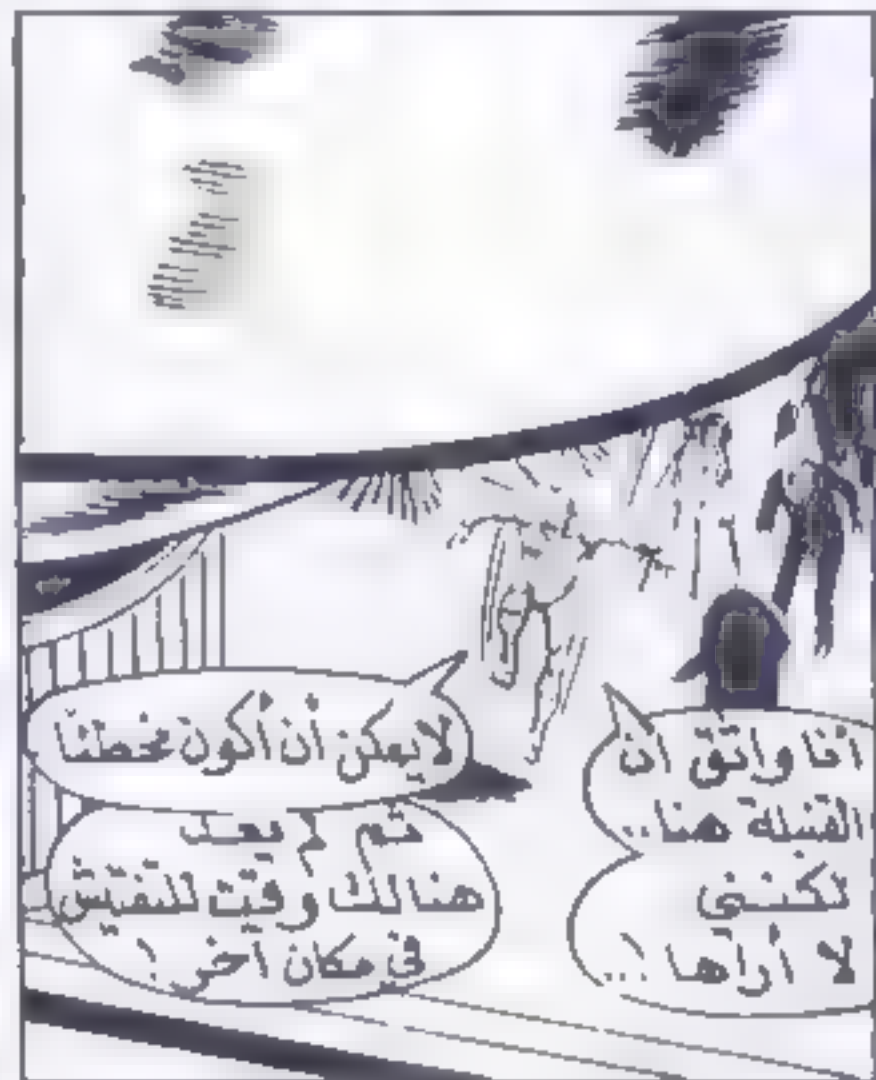 أنا واثق أن
القنبلة هنا..
لكننى
لا أراها !..
لايمكن أن أكون مخطئا
ثم لم يعد
هنالك وقت للتفتيش
فى مكان آخر !